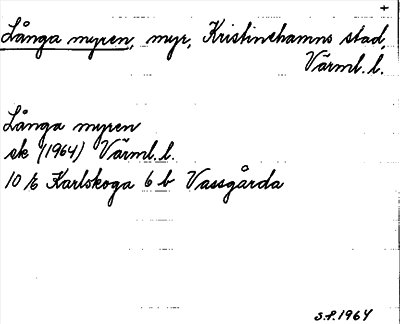 +
Långa myren, myr, Kristinehamns stad,
Värml. l.
Långa myren
sk (1964) Värml. l.
10 E Karlskoga 6 b Vassgårda
S.P. 1964